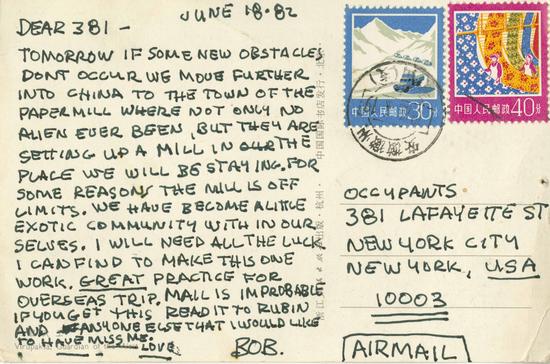 JUNE 18.82
DEAR 381 -
TOMORROW IF SOME NEW OBSTACLES
DONT OCCUR WE MOVE FURTHER
INTO CHINA TO THE TOWN OF THE
PAPERMILL WHERE NOT ONLY NO
ALIEN EVER BEEN, BUT THEY ARE
SETTING UP A MILL IN OUR THE
PLACE WE WILL BE STAYING. FOR
SOME REASON THE MILL IS OFF
LIMITS. WE HAVE BECOME A LITTLE
EXOTIC COMMUNITY WITH IN OUR
SELVES. I WILL NEED ALL THE LUCK
I CAN FIND TO MAKE THIS ONE
WORK. GREAT PRACTICE FOR
OVERSEAS TRIP. MAIL IS IMPROBABLE
IF YOU GET THIS READ IT TO RUBIN
AND ANYONE ELSE THAT I WOULD LIKE
TO HAVE MISS ME.
LOVE, BOB.
Virupaksa, Guardian of
中国人民邮政 30分
中国人民邮政 40分
中国国际书店发行·北京
OCCUPANTS
381 LAFAYETTE ST
NEW YORK CITY
NEW YORK, USA
10003
AIRMAIL